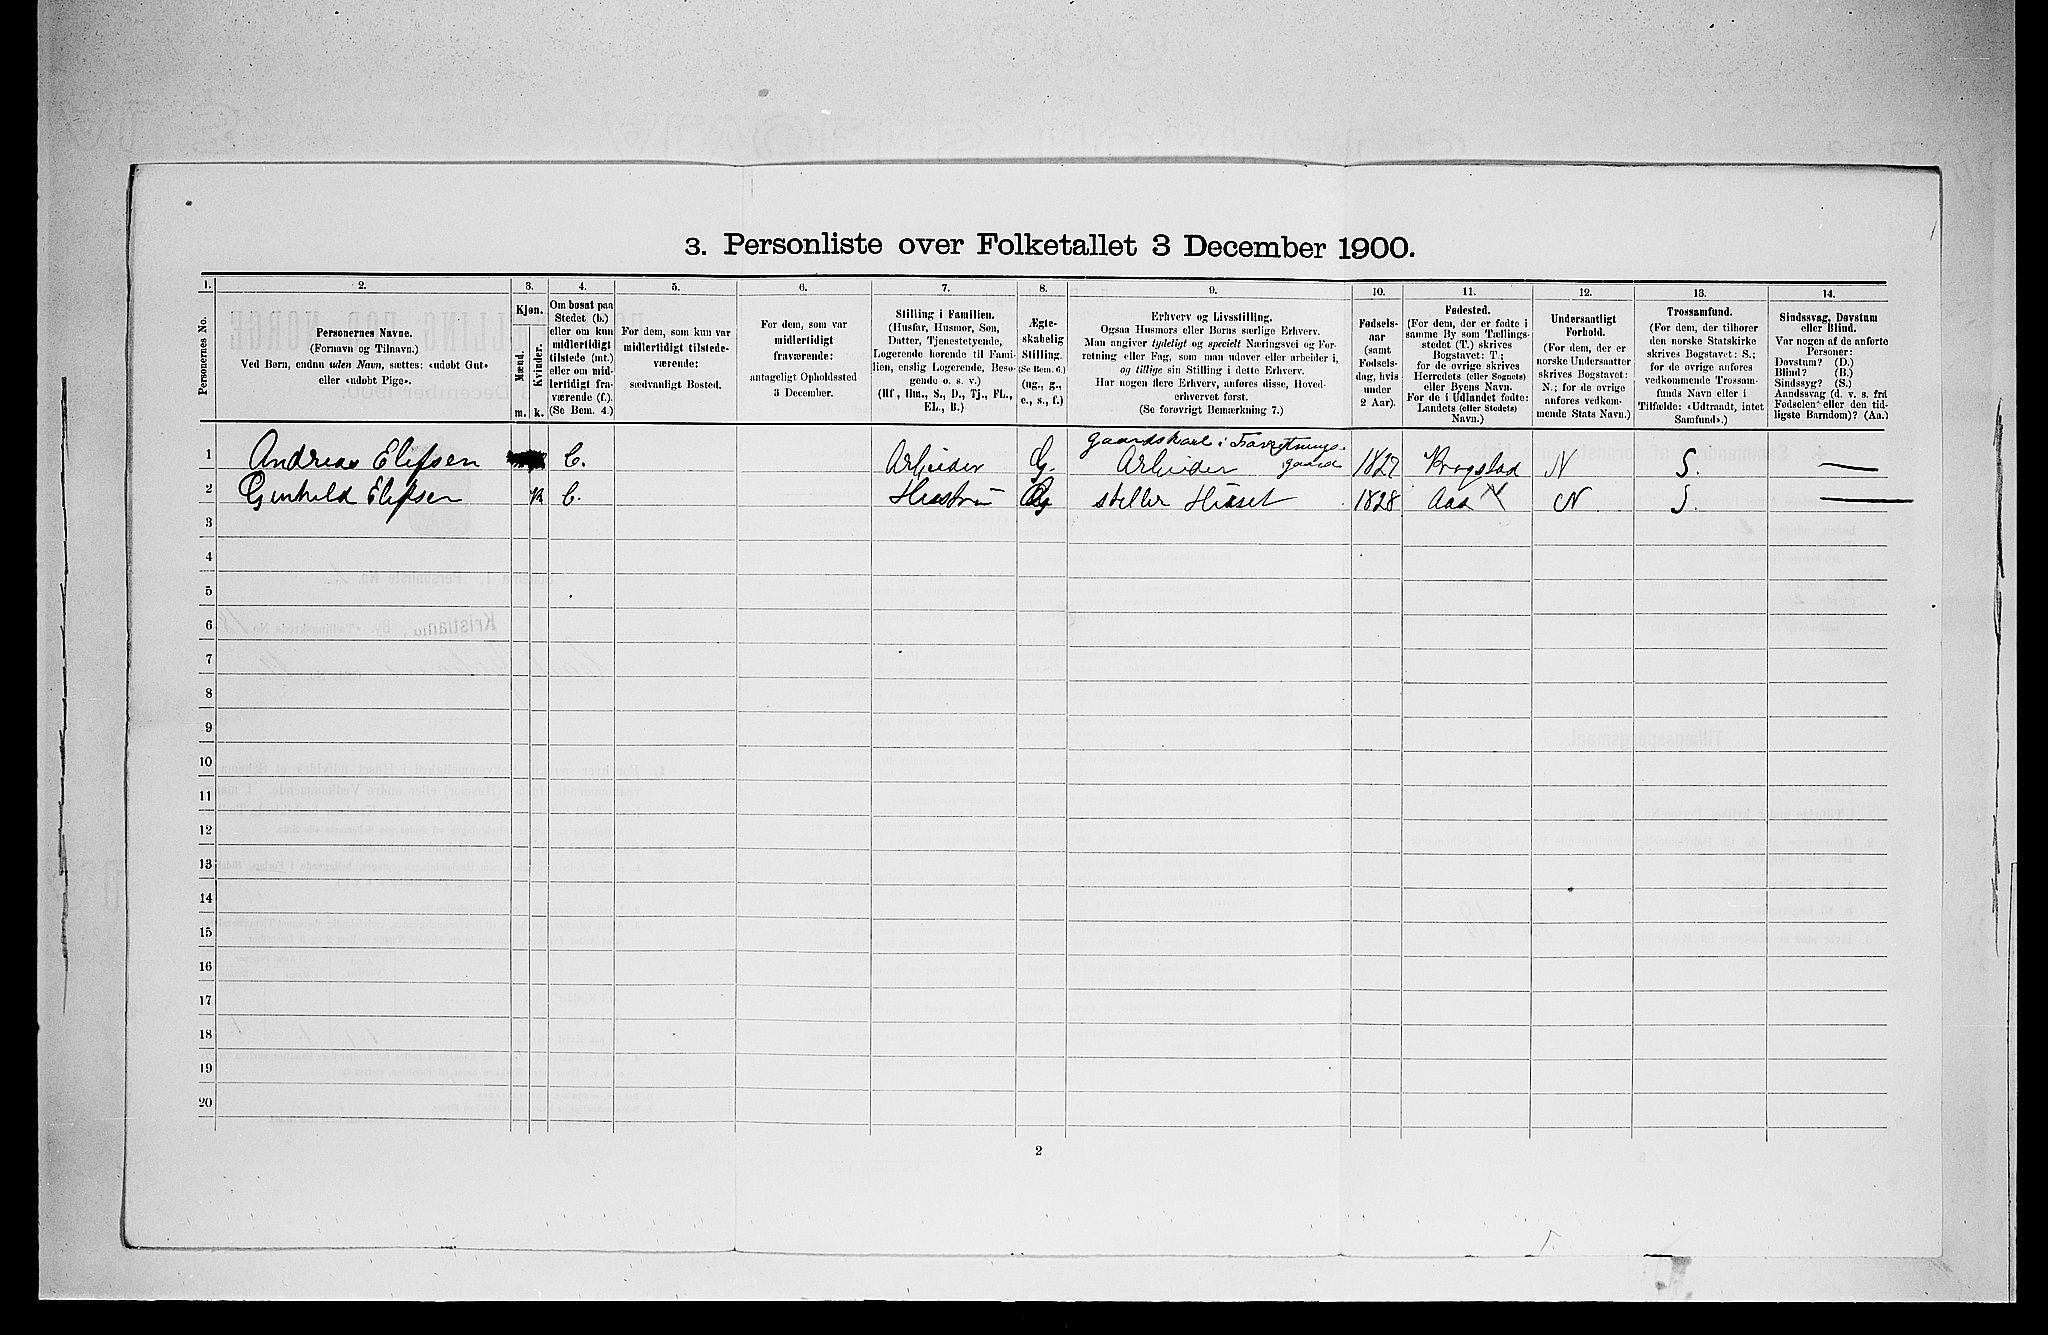 3. Personliste over Folketallet 3 December 1900.
1. 2. 3. 4. 5. 6. 7. 8. 9. 10. 11. 12. 13. 14.
Personernes No.
Personernes Navne.
(Fornavn og Tilnavn.)
Ved Børn, endnu uden Navn, sættes: «udøbt Gut»
eller «udøbt Pige».
Kjøn.
Mænd.
Kvinder.
m. k.
Om bosat paa
Stedet (b.)
eller om kun
midlertidigt
tilstede (mt.)
eller om mid-
lertidigt fra-
værende (f.).
(Se Bem. 4.)
For dem, som kun var
midlertidigt tilstede-
værende:
sædvanligt Bosted.
For dem, som var
midlertidigt
fraværende:
antageligt Opholdssted
3 December.
Stilling i Familien.
(Husfar, Husmor, Søn,
Datter, Tjenestetyende,
Logerende hørende til Fami-
lien, enslig Logerende, Besø-
gende o. s. v.)
(Hf, Hm., S., D., Tj., FL.,
EL., B.)
Ægte-
skabelig
Stilling.
(Se Bem. 6.)
(ug., g.,
e., s., f.)
Erhverv og Livsstilling.
Ogsaa Husmors eller Børns særlige Erhverv.
Man angiver tydeligt og specielt Næringsvei og For-
retning eller Fag, som man udøver eller arbeider i,
og tillige sin Stilling i dette Erhverv.
Har nogen flere Erhverv, anføres disse, Hoved-
erhvervet først.
(Se forøvrigt Bemærkning 7.)
Fødsels-
aar
(samt
Fødsels-
dag, hvis
under
2 Aar).
Fødested.
(For dem, der er fødte i
samme By som Tællings-
stedet (T.) skrives
Bogstavet: T;
for de øvrige skrives
Herredets (eller Sognets)
eller Byens Navn.
For de i Udlandet fødte:
Landets (eller Stedets)
Navn.)
Undersaatligt
Forhold.
(For dem, der er
norske Undersaatter
skrives Bogstavet:
N.; for de øvrige
anføres vedkom-
mende Stats Navn.)
Trossamfund.
(For dem, der tilhører
den norske Statskirke
skrives Bogstavet: S.;
for de øvrige anføres
vedkommende Trossam-
funds Navn eller i
Tilfælde: «Udtraadt, intet
Samfund».)
Sindssvag, Døvstum
eller Blind.
Var nogen af de anførte
Personer:
Døvstum? (D.)
Blind? (B.)
Sindssyg? (S.)
Aandssvag (d. v. s. fra
Fødselen eller den tid-
ligste Barndom)? (Aa.)
gaardskarl i Forretnings-
gaard
1 Andreas Elefsen b. Arbeider G. Arbeider 1827 Krogstad N S. —
2 Gunhild Elefsen K b. Hustru G steller Huset 1828 Aas N S. —
3
4
5
6
7
8
9
10
11
12
13
14
15
16
17
18
19
20
2